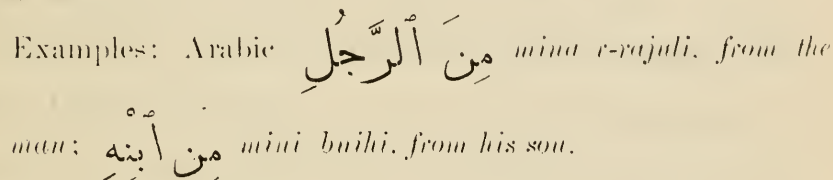 Examples: Arabic مِنَ ٱلرَّجُلِ mina r-rajuli. from the
man; مِنِ ٱبْنِهِ mini bnihi. from his son.